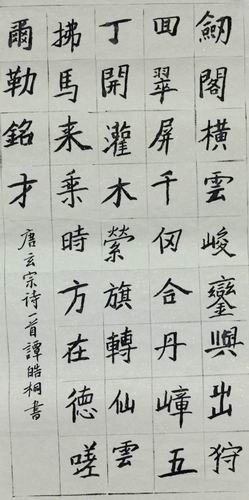 劒閣橫雲峻鑾輿出狩
回翠屏千仞合丹嶂五
丁開灌木縈旗轉仙雲
拂馬来乘時方在德嗟
爾勒銘才
唐玄宗诗一首譚皓桐書